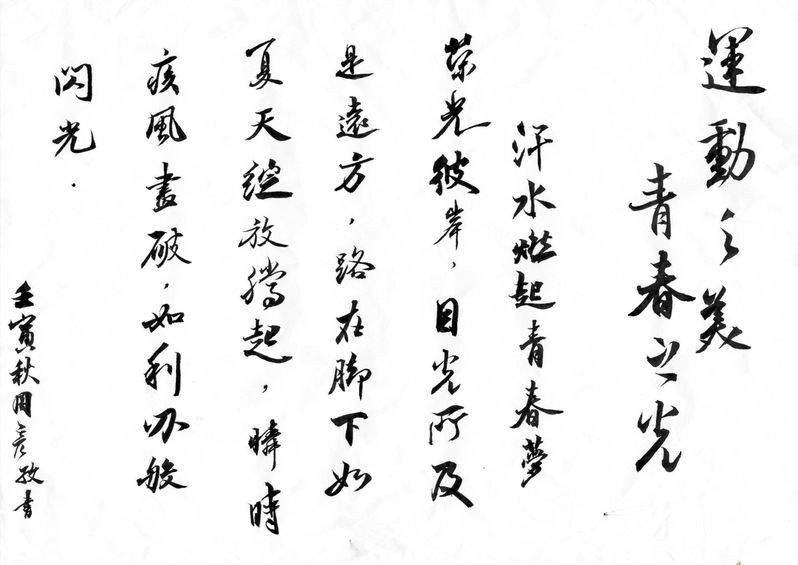 運動之美
青春之光
汗水燃起青春夢
榮光彼岸，目光所及
是遠方，路在腳下如
夏天綻放騰起，瞬時
疾風盡破，如利刃般
閃光．
壬寅秋周彥敬書